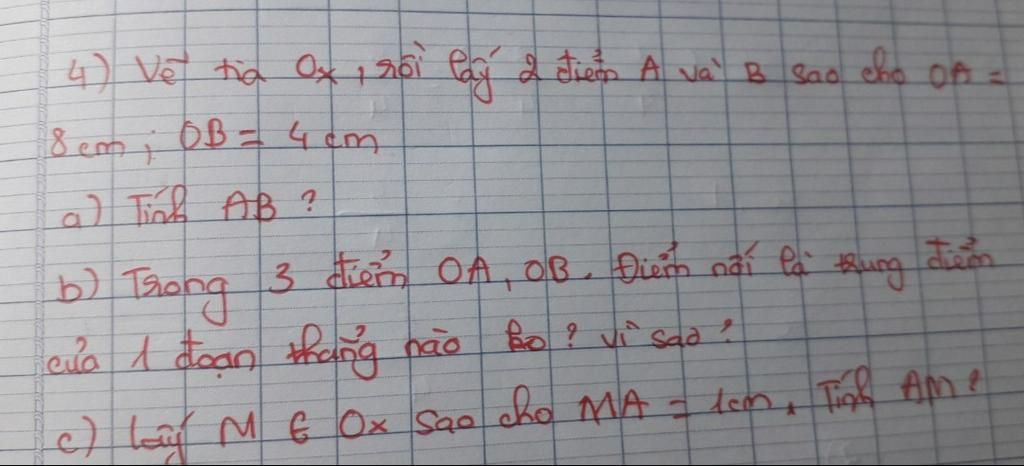 4) Vẽ tia Ox, rồi lấy 2 điểm A và B sao cho OA =
8cm ; OB = 4 cm
a) Tính AB ?
b) Trong 3 điểm OA, OB. Điểm nới là trung điểm
của 1 đoạn thẳng nào ko ? vì sao ?
c) Lấy M ∈ Ox sao cho MA = 1cm. Tính AM ?